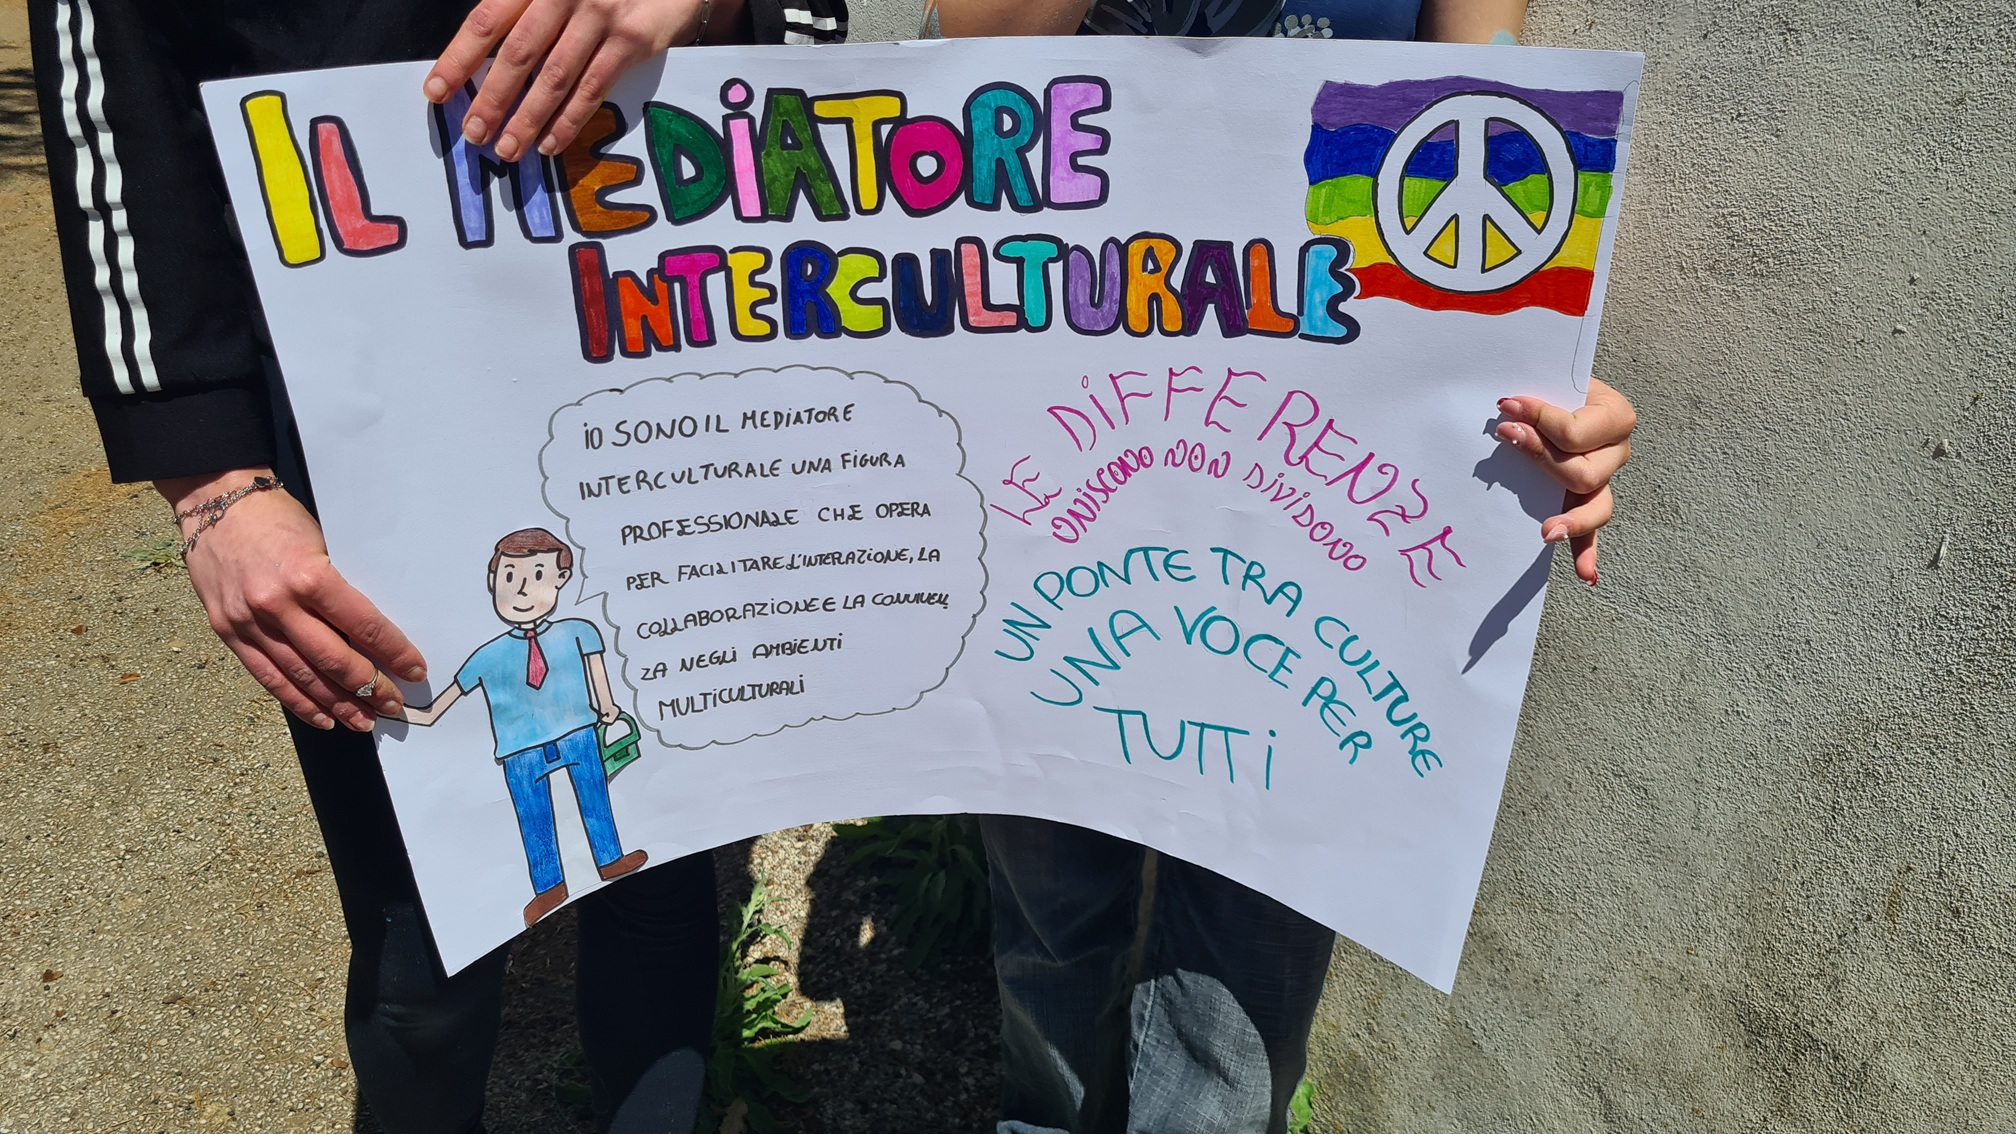 IL MEDiATORE
INTERCULTURALE
iO SONO IL MEDIATORE
INTERCULTURALE UNA FIGURA
PROFESSIONALE CHE OPERA
PER FACILITARE L'INTERAZIONE, LA
COLLABORAZIONE E LA CONVIVEN
ZA NEGLi AMBIENTi
MULTICULTURALi
LE DiFFERENZE
UNISCONO NON DiViDONO
UN PONTE TRA CULTURE
UNA VOCE PER
TUTTi